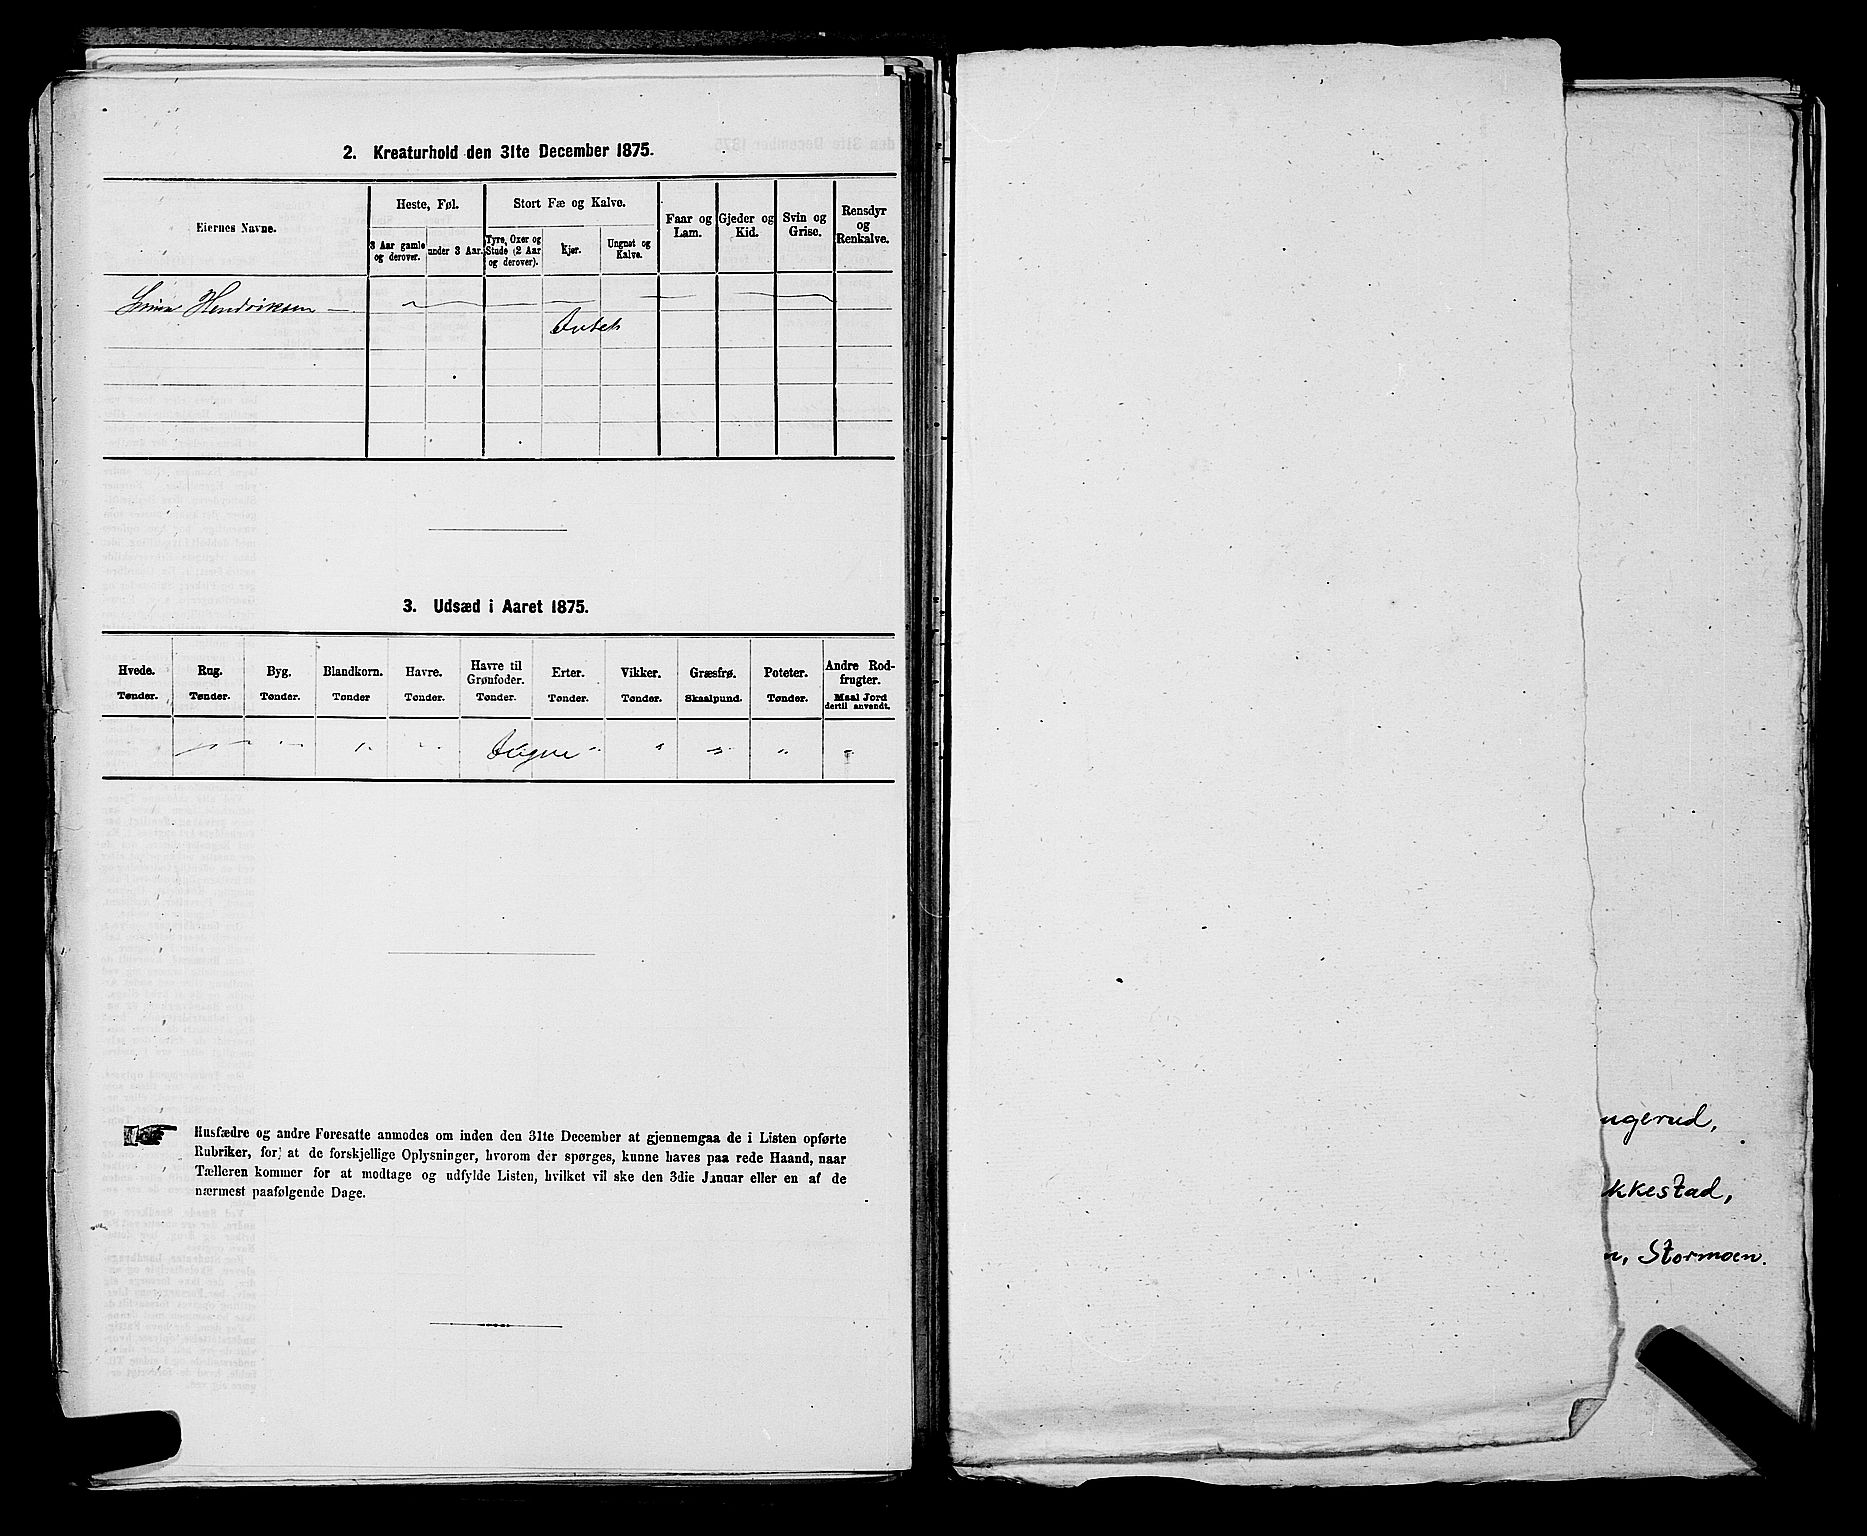 2. Kreaturhold den 31te December 1875.
Eiernes Navne.
Heste, Føl.
3 Aar gamle og derover.
under 3 Aar.
Stort Fæ og Kalve.
Tyre, Oxer og Stude (2 Aar og derover).
Kjør.
Ungnøt og Kalve.
Faar og Lam.
Gjeder og Kid.
Svin og Grise.
Rensdyr og Renkalve.
Hendriksen
3. Udsæd i Aaret 1875.
Hvede. Tønder.
Rug. Tønder.
Byg. Tønder.
Blandkorn. Tønder
Havre. Tønder.
Havre til Grønfoder. Tønder.
Erter. Tønder.
Vikker. Tønder.
Græsfrø. Skaalpund.
Poteter. Tønder.
Andre Rodfrugter. Maal Jord dertil anvendt.
Husfædre og andre Foresatte anmodes om inden den 31te December at gjennemgaa de i Listen opførte
Rubriker, for at de forskjellige Oplysninger, hvorom der spørges, kunne haves paa rede Haand, naar
Tælleren kommer for at modtage og udfylde Listen, hvilket vil ske den 3die Januar eller en af de
nærmest paafølgende Dage.
ugerud,
kkestad,
n, Stormoen.